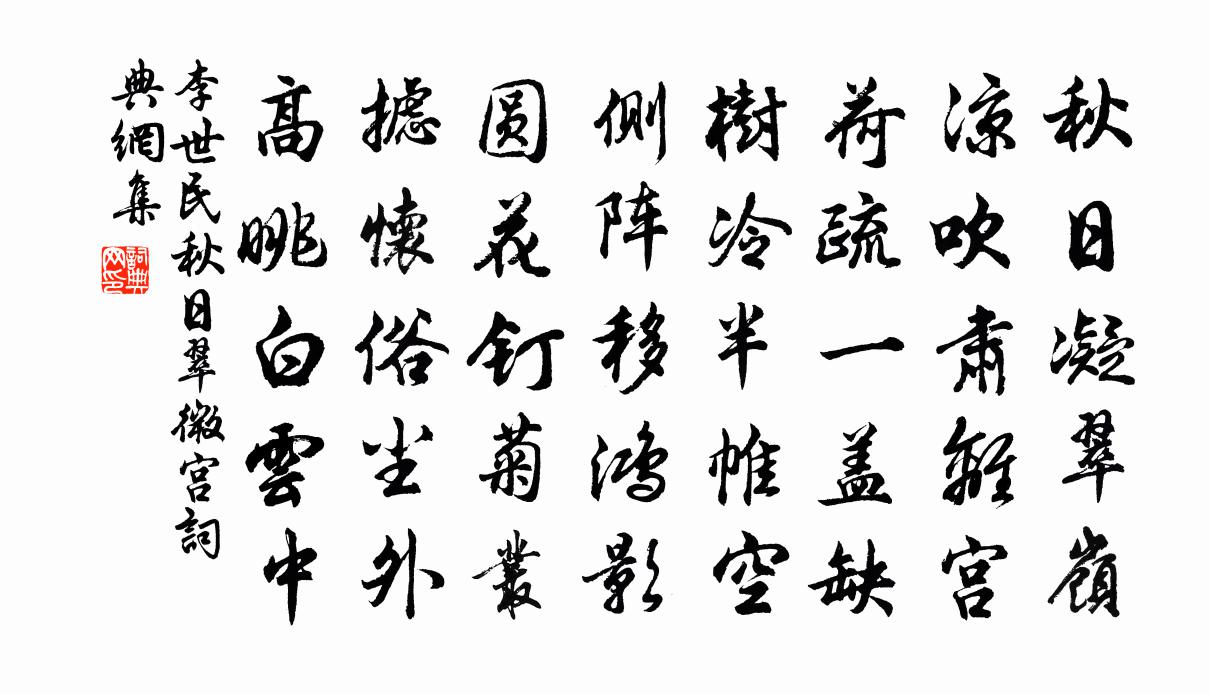 秋日凝翠嶺
涼吹肅離宮
荷疏一盖缺
樹冷半帷空
側阵移鴻影
圆花釘菊叢
攄懷俗尘外
高眺白雲中
李世民秋日翠微宮詞
典網集
詞典
网印